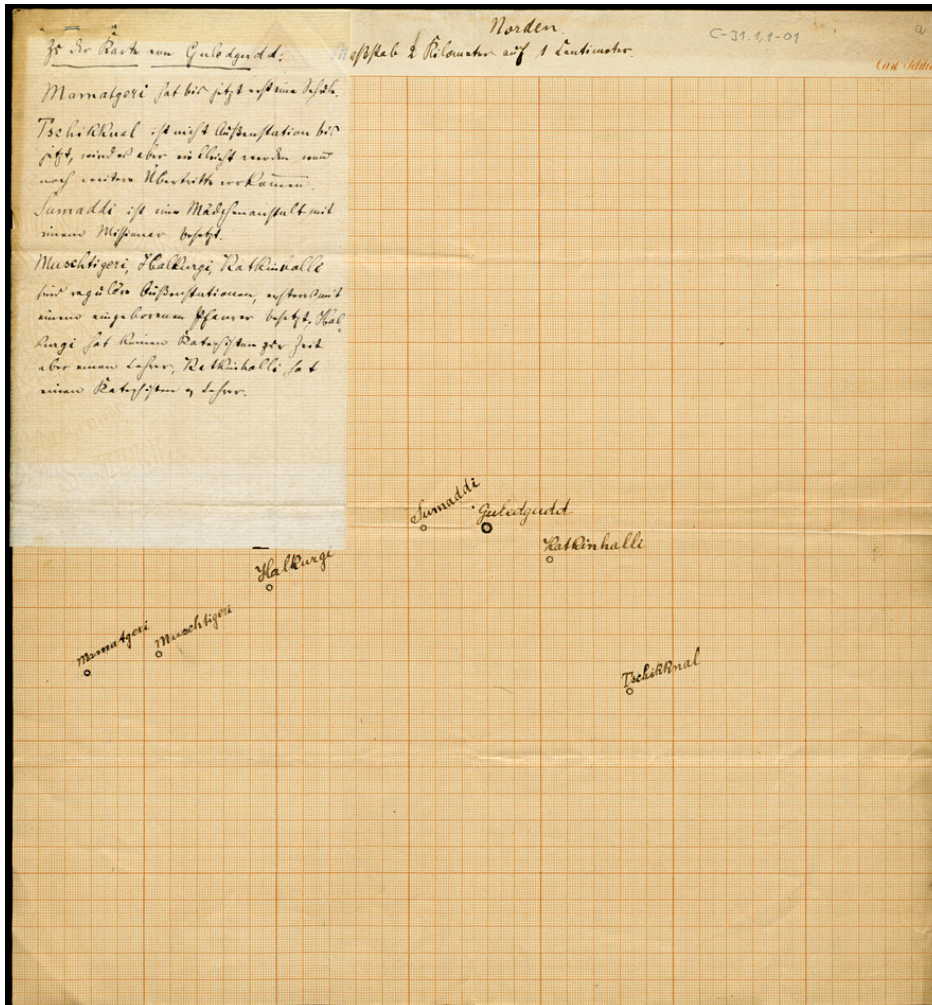 Norden
C-31.1,1-01
Maßstab 2 Kilometer auf 1 Centimeter.
Zu der Karte von Guledgudd:
Mamatgeri hat bis jetzt erst eine Schule.
Tschikknal ist nicht Außenstation bis
jetzt, wird es aber vielleicht werden, wenn
noch weitere Übertritte vorkommen.
Sumaddi ist eine Mädchenanstalt mit
einem Missionar besetzt.
Muschtigeri, Halkurgi, Katkinhalli
sind reguläre Außenstationen, ersteres mit
einem eingeborenen Pfarrer besetzt. Hal-
kurgi hat keinen Katechisten zur Zeit
aber einen Lehrer, Katkinhalli hat
einen Katechisten & Lehrer.
Sumaddi
Guledgudd
Katkinhalli
Halkurgi
Mamatgeri
Muschtigeri
Tschikknal